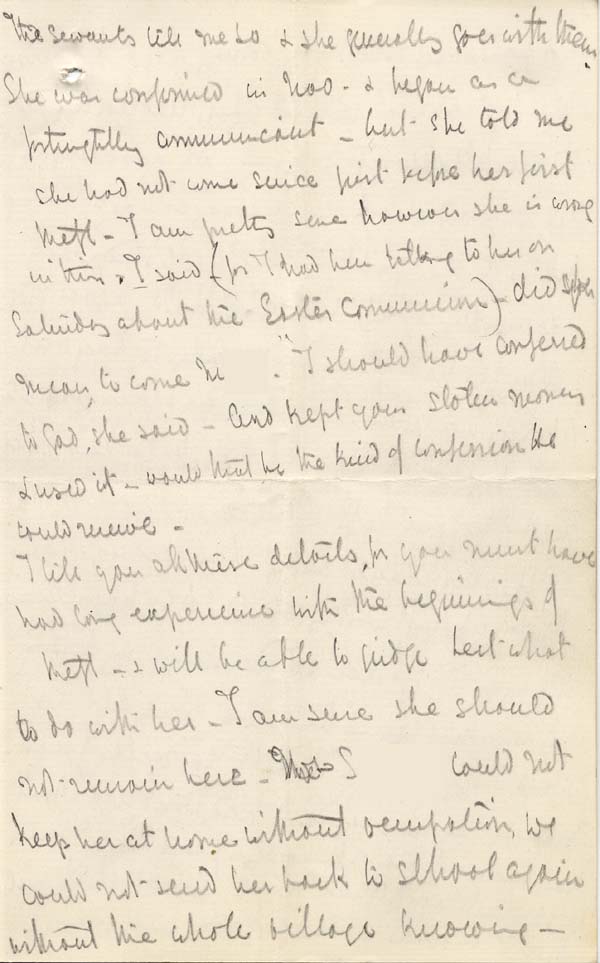 The servants tell me so & she generally goes with them.
She was confirmed in Nov - & began as a
fortnightly communicant - but she told me
she had not come since just before her first
theft - I am pretty sure however she is wrong
in this. I said - (for I had been talking to her on
Saturday about the Easter Communion) - did you
mean to come "I should have confessed
to God, she said - and kept your stolen money
& used it - would that be the kind of confession He
could receive -
I tell you all these details, for you must have
had long experience with the beginnings of
theft - & will be able to judge best what
to do with her - I am sure she should
not remain here - S could not
keep her at home without occupation, we
could not send her back to school again
without the whole village knowing -